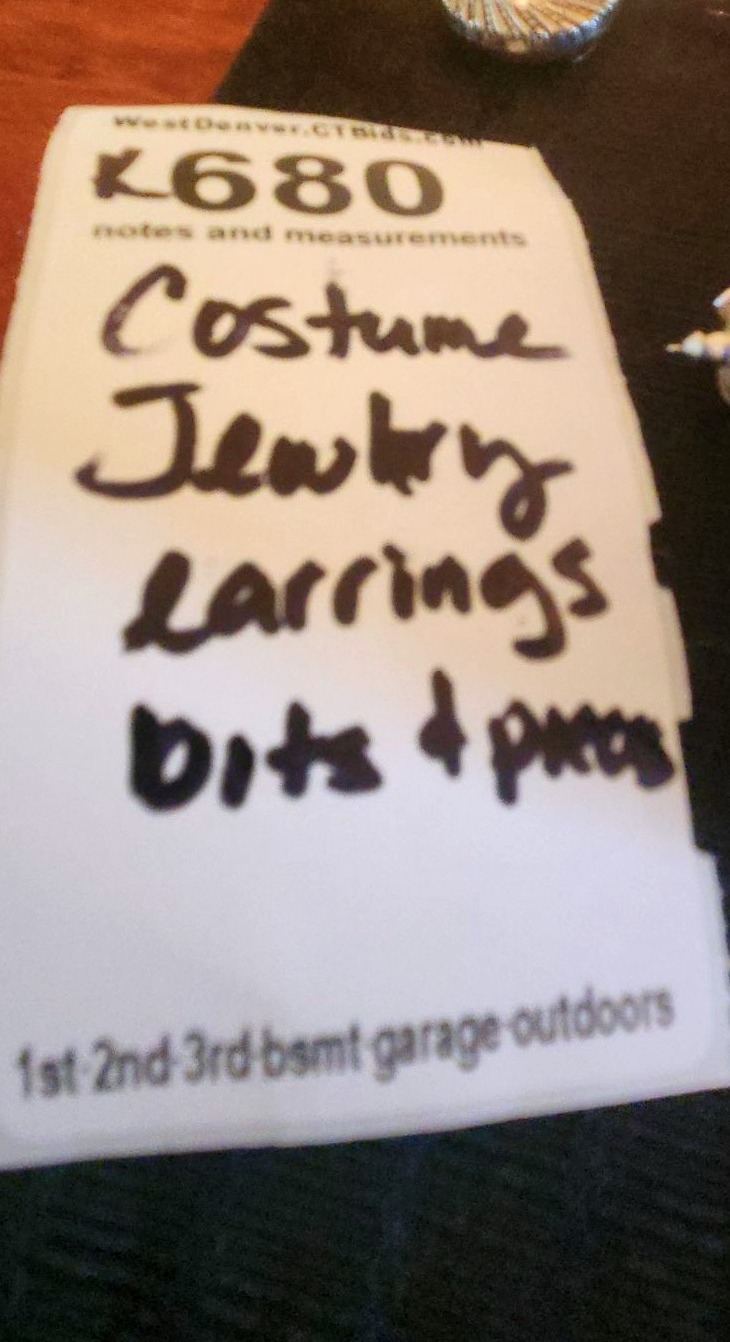 WestDenver.CTBids.com
K680
notes and measurements
Costume
Jewlry
earrings
bits &
1st-2nd-3rd-bsmt-garage-outdoors